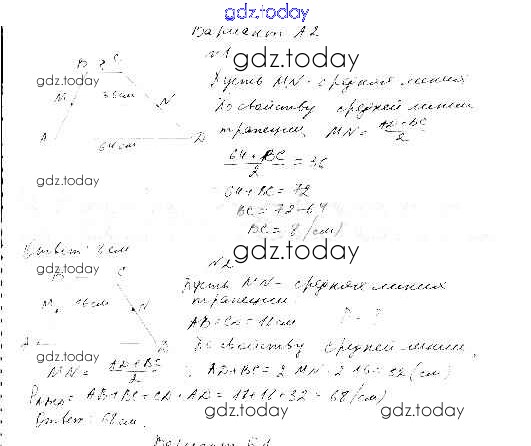 gdz.today
Вариант А2
gdz.today
№1
B ? C
gdz.today
M 36см N
Пусть MN - средняя линия
По свойству средней линии
трапеции, MN = (AD+BC)/2
A 64см D
gdz.today
(64+BC)/2 = 36
64+BC = 72
BC = 72-64
BC = 8 (см)
Ответ: 8см
gdz.today
№2
gdz.today
B C
M 16см N
Пусть MN - средняя линия
трапеции
AB=CD= см P - ?
A D
По свойству средней линии,
gdz.today
MN = (AD+BC)/2, AD+BC = 2MN = 2·16 = 32 (см)
= AB+BC+CD+AD = + +32 = 68 (см)
gdz.today
gdz.today
Ответ: 68см.
Вариант